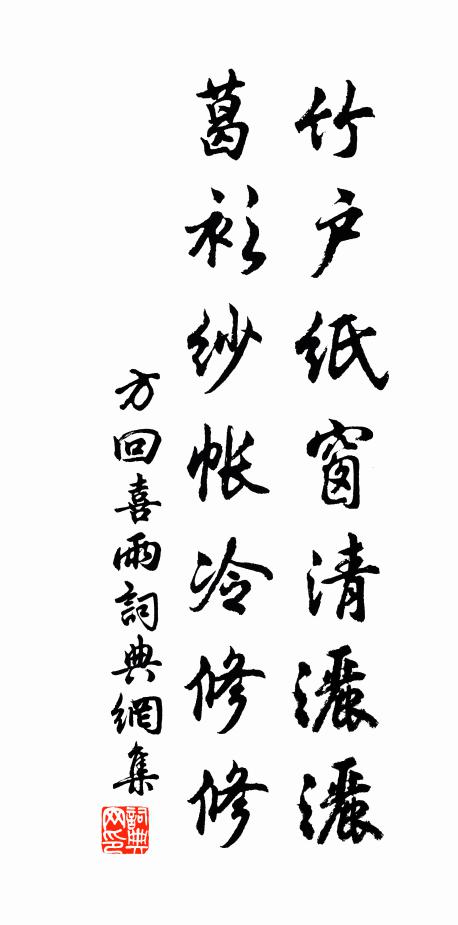 竹户紙窗清灑灑
葛衫紗帳冷修修
方回喜雨詞典網集
詞典網印